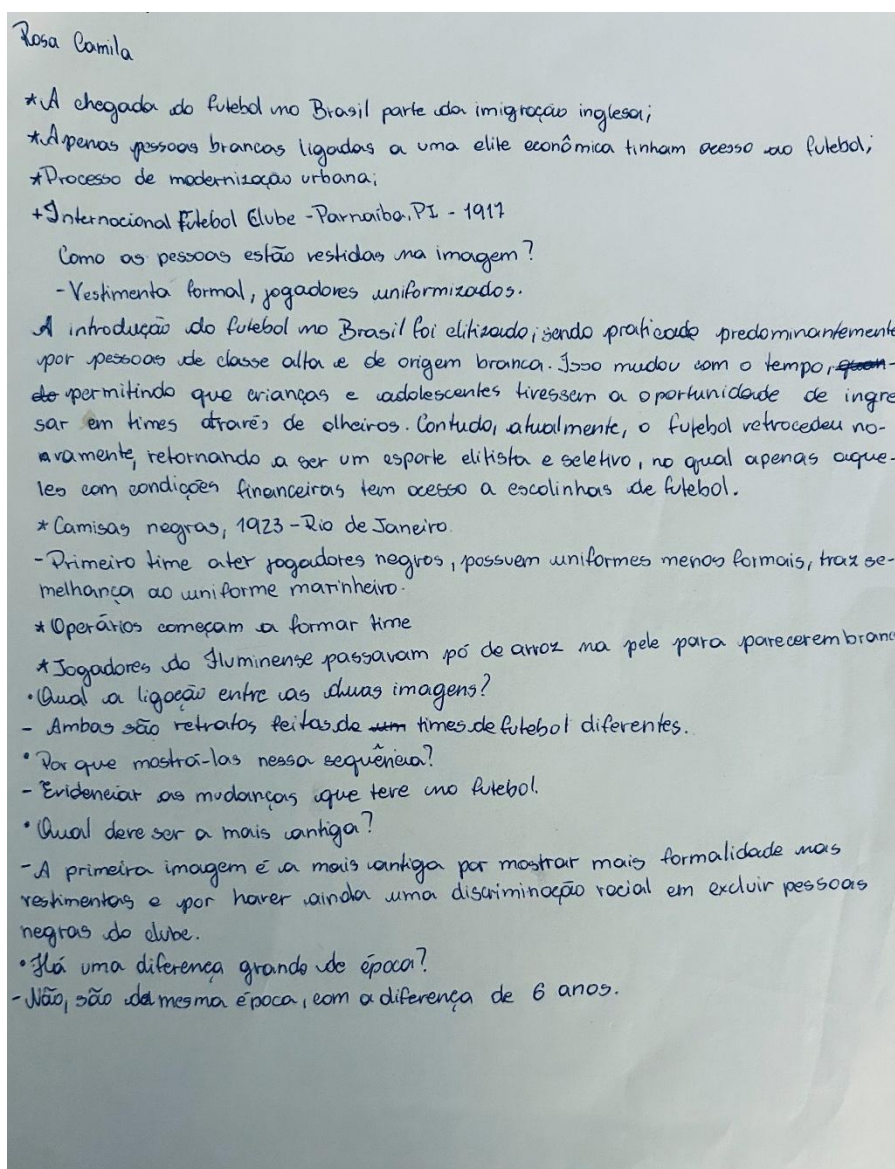 Rosa Camila
*A chegada do futebol no Brasil parte da imigração inglesa;
*Apenas pessoas brancas ligadas a uma elite econômica tinham acesso ao futebol;
*Processo de modernização urbana;
+Internacional Futebol Clube - Parnaíba, PI - 1917
Como as pessoas estão vestidas na imagem?
- Vestimenta formal, jogadores uniformizados.
A introdução do futebol no Brasil foi elitizado, sendo praticado predominantemente
por pessoas de classe alta e de origem branca. Isso mudou com o tempo, quan-
do permitindo que crianças e adolescentes tivessem a oportunidade de ingre
sar em times através de olheiros. Contudo, atualmente, o futebol retrocedeu no-
vamente, retornando a ser um esporte elitista e seletivo, no qual apenas aque-
les com condições financeiras tem acesso a escolinhas de futebol.
* Camisas negras, 1923 - Rio de Janeiro.
- Primeiro time a ter jogadores negros, possuem uniformes menos formais, traz se-
melhança ao uniforme marinheiro.
* Operários começam a formar time
* Jogadores do Fluminense passavam pó de arroz na pele para parecerem branc
• Qual a ligação entre as duas imagens?
- Ambas são retratos feitas de um times de futebol diferentes.
• Por que mostrá-las nessa sequência?
- Evidenciar as mudanças que teve no futebol.
• Qual deve ser a mais antiga?
- A primeira imagem é a mais antiga por mostrar mais formalidade nas
vestimentas e por haver ainda uma discriminação racial em excluir pessoas
negras do clube.
• Há uma diferença grande de época?
- Não, são da mesma época, com a diferença de 6 anos.